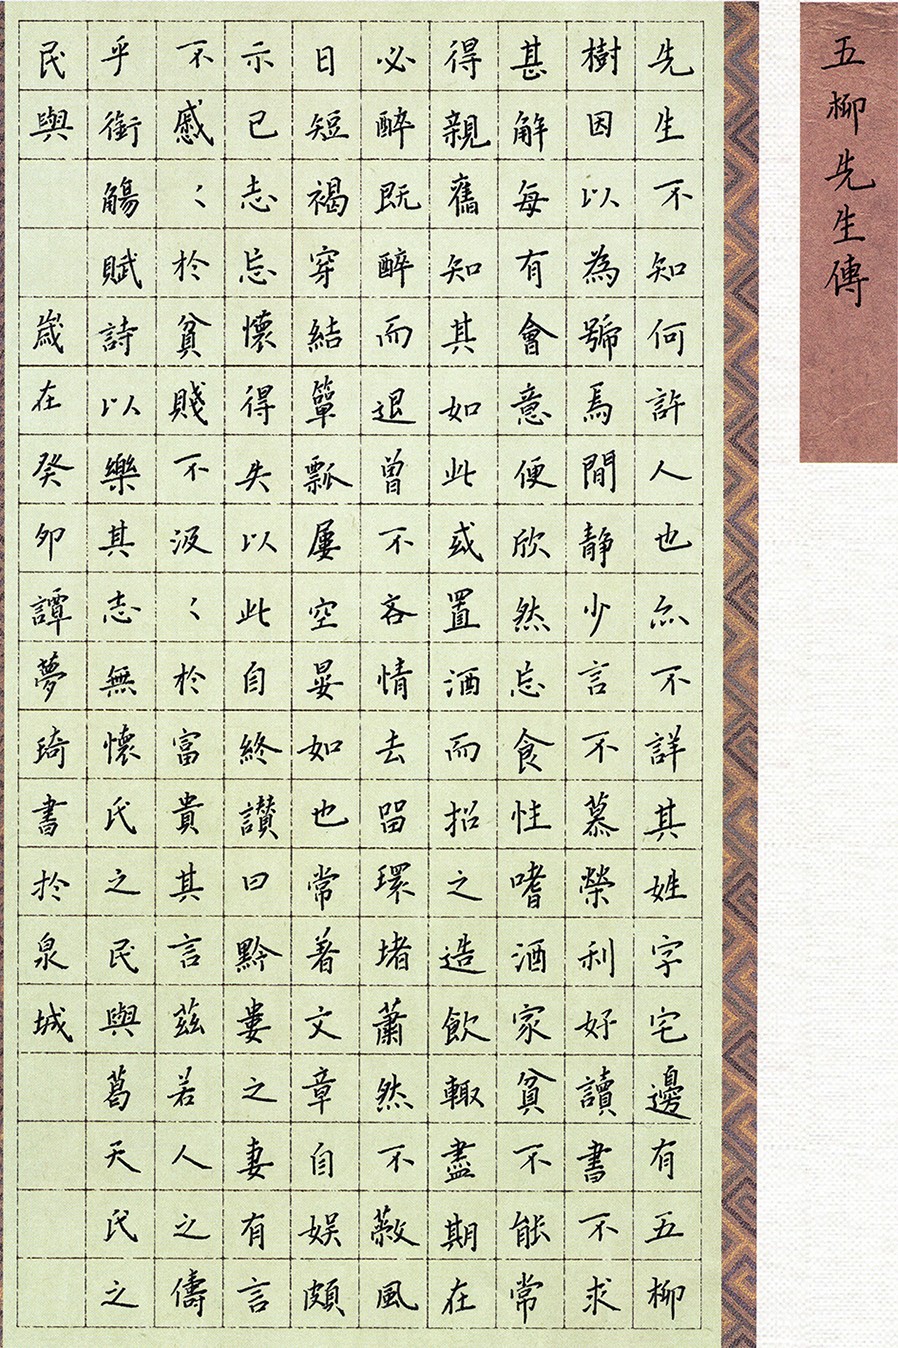 五柳先生傳
先生不知何許人也亦不詳其姓字宅邊有五柳
樹因以為號焉閒静少言不慕榮利好讀書不求
甚解每有會意便欣然忘食性嗜酒家貧不能常
得親舊知其如此或置酒而招之造飲輙盡期在
必醉既醉而退曾不吝情去留環堵蕭然不蔽風
日短褐穿結簞瓢屢空晏如也常著文章自娱頗
示己志忘懷得失以此自終讃曰黔婁之妻有言
不慼〻於貧賤不汲〻於富貴其言茲若人之儔
乎銜觴賦詩以樂其志無懷氏之民與葛天氏之
民與 歲在癸卯譚夢琦書於泉城